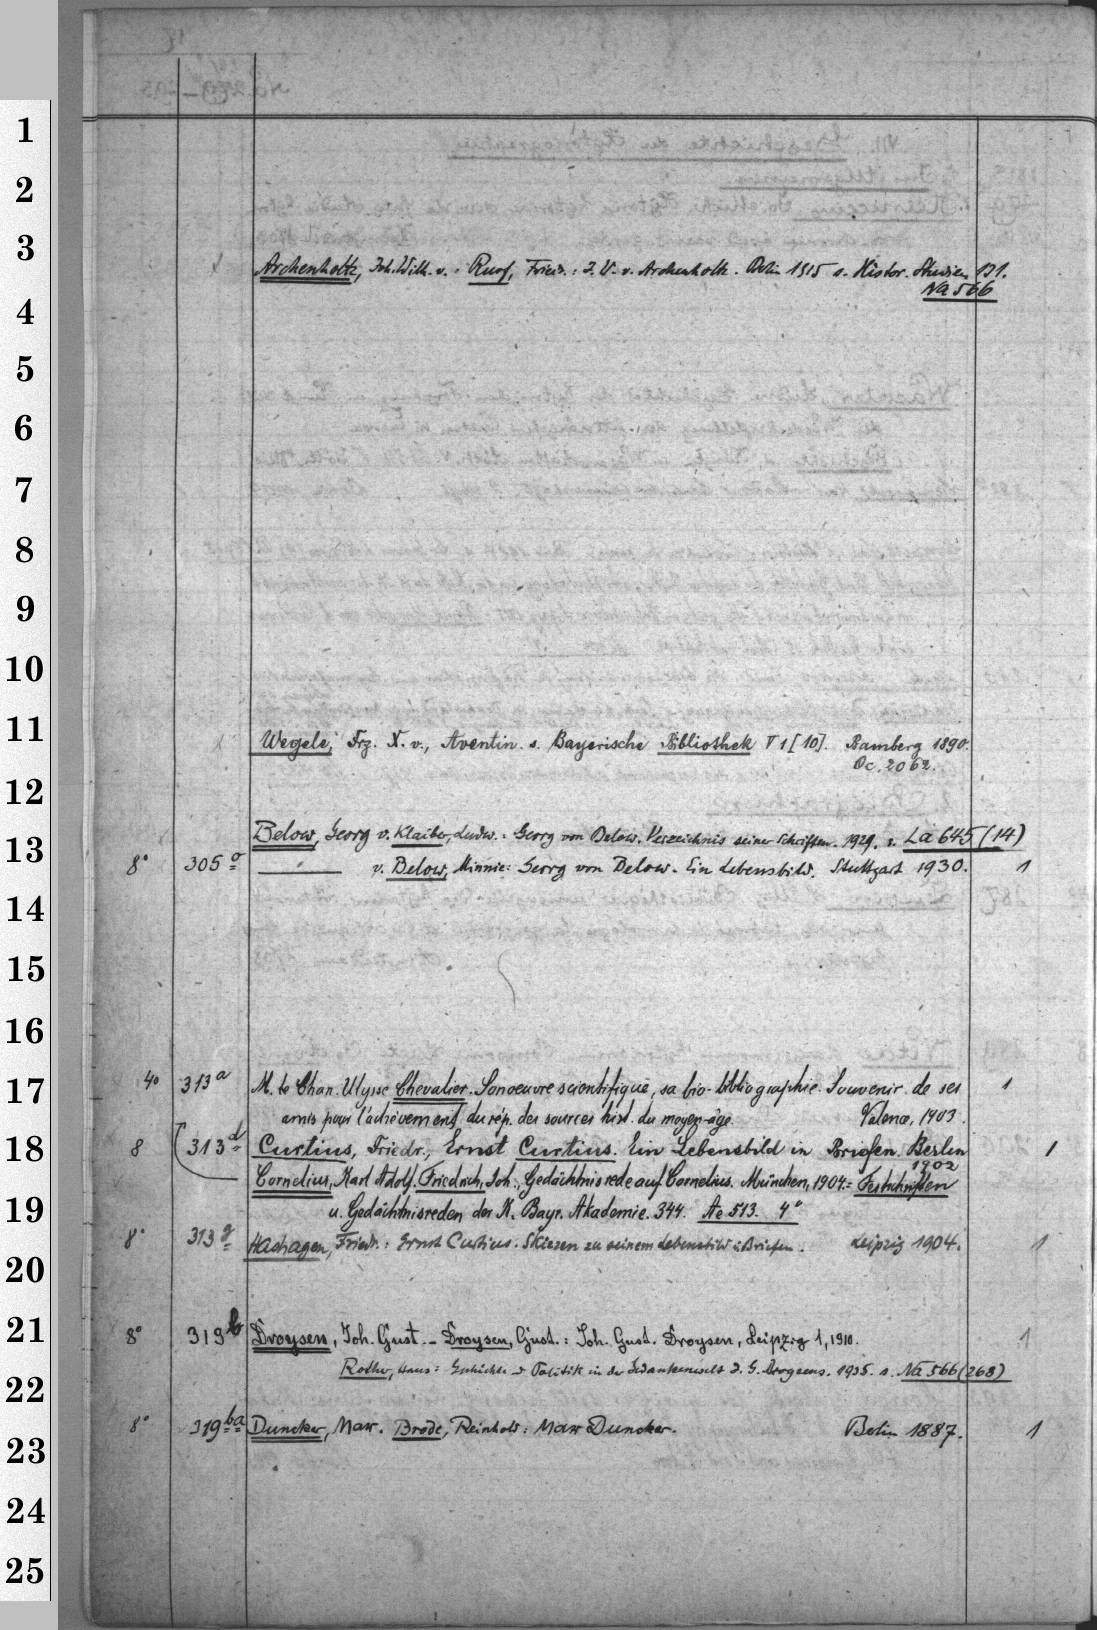 1
2
3
Archenholtz, Joh. Wilh. v. : Ruof, Friedr. : J. W. v. Archenholtz. Berlin 1915 s. Histor. Studien 131.
Na 566
4
5
6
7
8
9
10
11
Wegele, Frz. X. v., Aventin. s. Bayerische Bibliothek V 1 [10]. Bamberg 1890.
Oc. 2062.
12
Below, Georg v. Klaiber, Ludw. : Georg von Below. Verzeichnis seiner Schriften. 1929. s. La 645 (14)
13
8° 305 g v. Below, Minnie: Georg von Below. Ein Lebensbild. Stuttgart 1930. 1
14
15
16
17
4° 313 a M. le Chan. Ulysse Chevalier. Son oeuvre scientifique, sa bio-bibliographie. Souvenir de ses 1
amis pour l'achèvement du rép. des sources hist. du moyen-âge. Valence, 1903.
18
8 313 d Curtius, Friedr., Ernst Curtius. Ein Lebensbild in Briefen. Berlin 1
1902
Cornelius, Karl Adolf. Friedrich, Joh., Gedächtnisrede auf Cornelius. München, 1904. = Festschriften
19
u. Gedächtnisreden der K. Bayr. Akademie. 344. Ae 513. 4°
8° 313 g Hashagen, Friedr. : Ernst Curtius. Skizzen zu seinem Lebensbild i. Briefen. Leipzig 1904. 1
20
21
8° 319 b Droysen, Joh. Gust. - Droysen, Gust. : Joh. Gust. Droysen, Leipzig 1, 1910. 1
Rother, Hans: Geschichte u. Politik in der Gedankenwelt J. G. Droysens. 1935. s. Na 566 (268)
22
8° 319 ba Duncker, Max. Brode, Reinhold: Max Duncker. Berlin 1887. 1
23
24
25